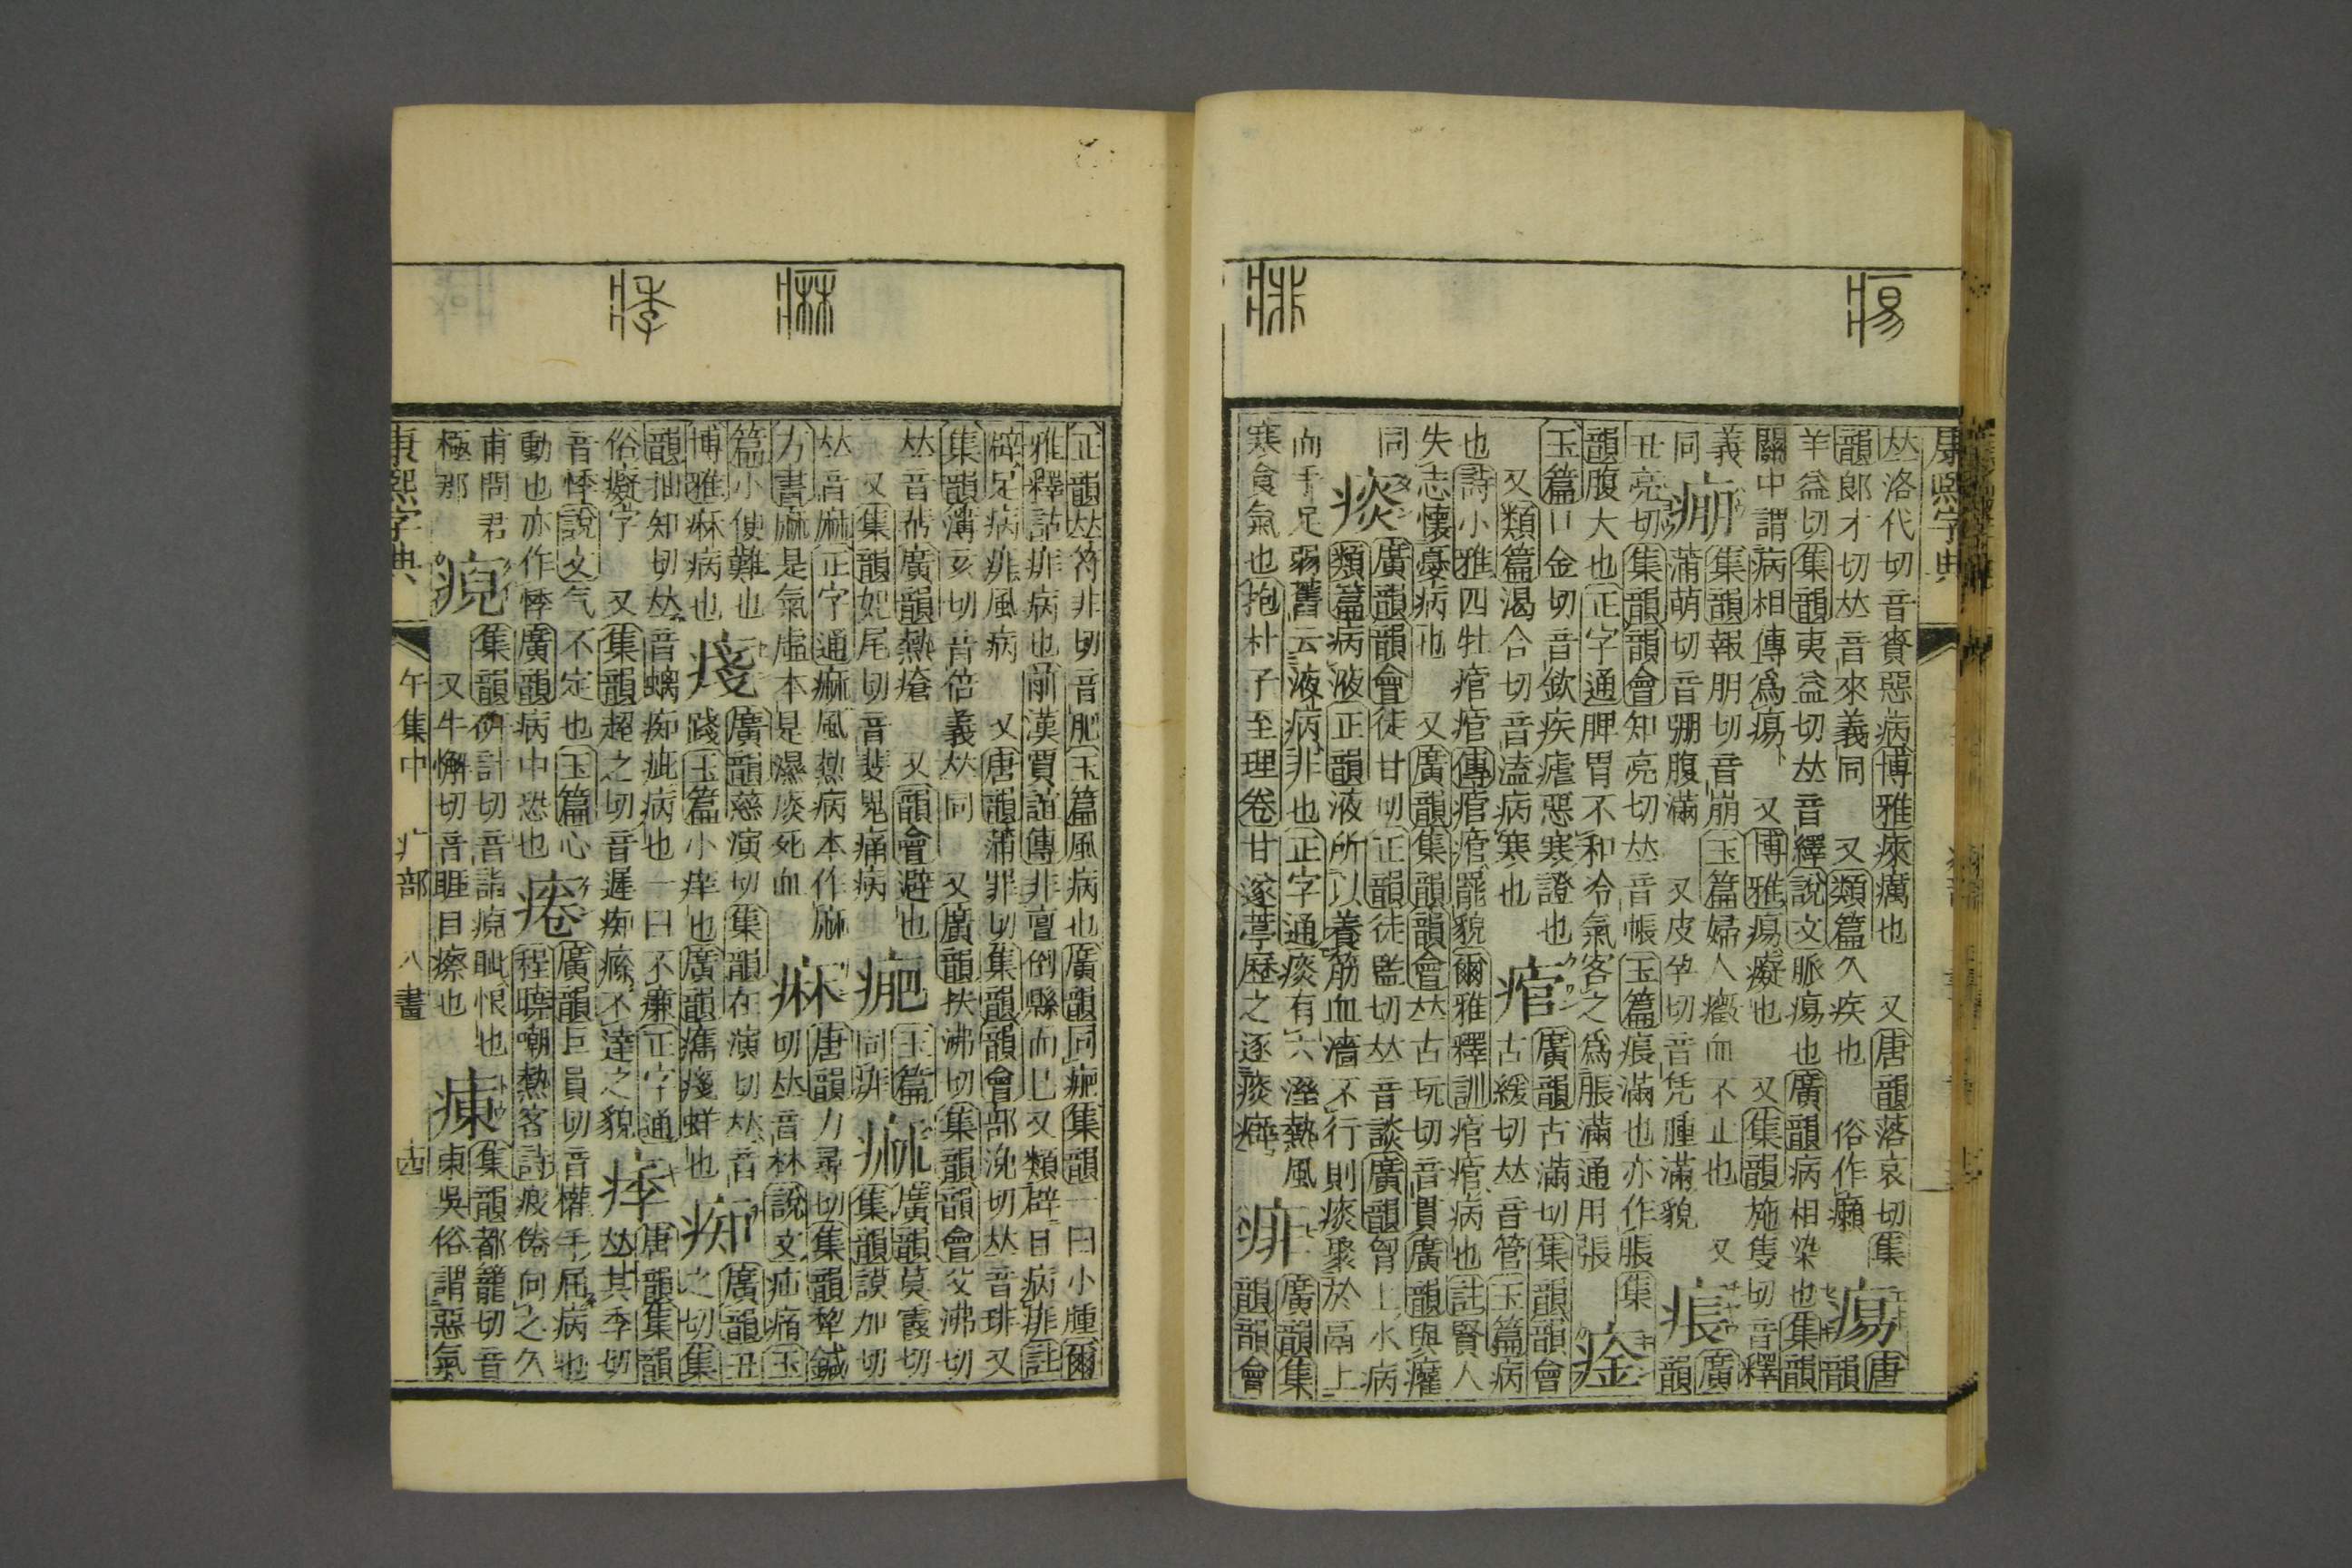 康熙字典
𠀤洛代切音賚惡病博雅㾢癘也 又唐韻落哀切集 唐
韻郎才切𠀤音來義同 又類篇久疾也 俗作癩 痬 韻
羊益切集韻夷益切𠀤音繹說文脈痬也廣韻病相染也集韻
關中謂病相傳爲痬 又博雅痬癡也 又集韻施隻切音釋
義 集韻報朋切音崩玉篇婦人癥血不止也 又 廣
同 痭 蒲萌切音弸腹滿 又皮孕切音凭腫滿貌 痮 韻
丑亮切集韻韻會知亮切𠀤音帳玉篇痮滿也亦作脹 集
韻腹大也正字通脾胃不和冷氣客之爲脹滿通用張 㾣
玉篇口金切音欽疾瘧惡寒證也 廣韻古滿切集韻韻會
又類篇渴合切音溘病寒也 痯 古緩切𠀤音管玉篇病
也詩小雅四牡痯痯傳痯痯罷貌爾雅釋訓痯痯病也註賢人
失志懷憂病也 又廣韻集韻韻會𠀤古玩切音貫廣韻與癯
同 廣韻韻會徒甘切正韻徒監切𠀤音談廣韻胷上水病
痰 類篇病液正韻液所以養筋血濇不行則痰聚於鬲上
血手足弱舊云液病非也正字通痰有六溼熱風 廣韻集
寒食氣也抱朴子至理卷甘遂葶歷之逐痰癖 痱 韻韻會
正韻𠀤符非切音肥玉篇風病也廣韻同 集韻一曰小腫爾
雅釋詁痱病也前漢賈誼傳非亶倒縣而已又類辟且病痱註
辟足病痱風病 又唐韻蒲罪切集韻韻會部浼切𠀤音琲又
集韻溝亥切音倍義𠀤同 又廣韻扶沸切集韻韻會父沸切
𠀤音 廣韻熱瘡 又韻會避也 玉篇 廣韻莫霞切
又集韻妃尾切音斐嵬痛病 同痱 痲 集韻謨加切
𠀤音麻正字通痲風熱病本作麻 唐韻力尋切集韻犂鍼
方書麻是氣虛本是濕痰死血 痳 切𠀤音林說文疝痛玉
篇小便難也 廣韻慈演切集韻在演切𠀤音 廣韻丑
博雅痳病也 踐玉篇小痒也廣韻 蛘也 痴 之切集
韻抽知切𠀤音螭痴 病也一曰不廉正字通 唐韻集韻
俗癡字 又集韻超之切音遲痴 不達之貌 痵 𠀤其季切
音悸說文气不定也玉篇心 廣韻巨員切音權手屈病也
動也亦作悸廣韻病中恐也 痯 程曉嘲熱客詩疲倦向之久
甫問君 集韻研計切音詣 恨也 集韻都籠切音
極那 又牛懈切音睚目瘵也 㼯 東吳俗謂惡氣
康熙字典 午集中 疒部 八畫 古